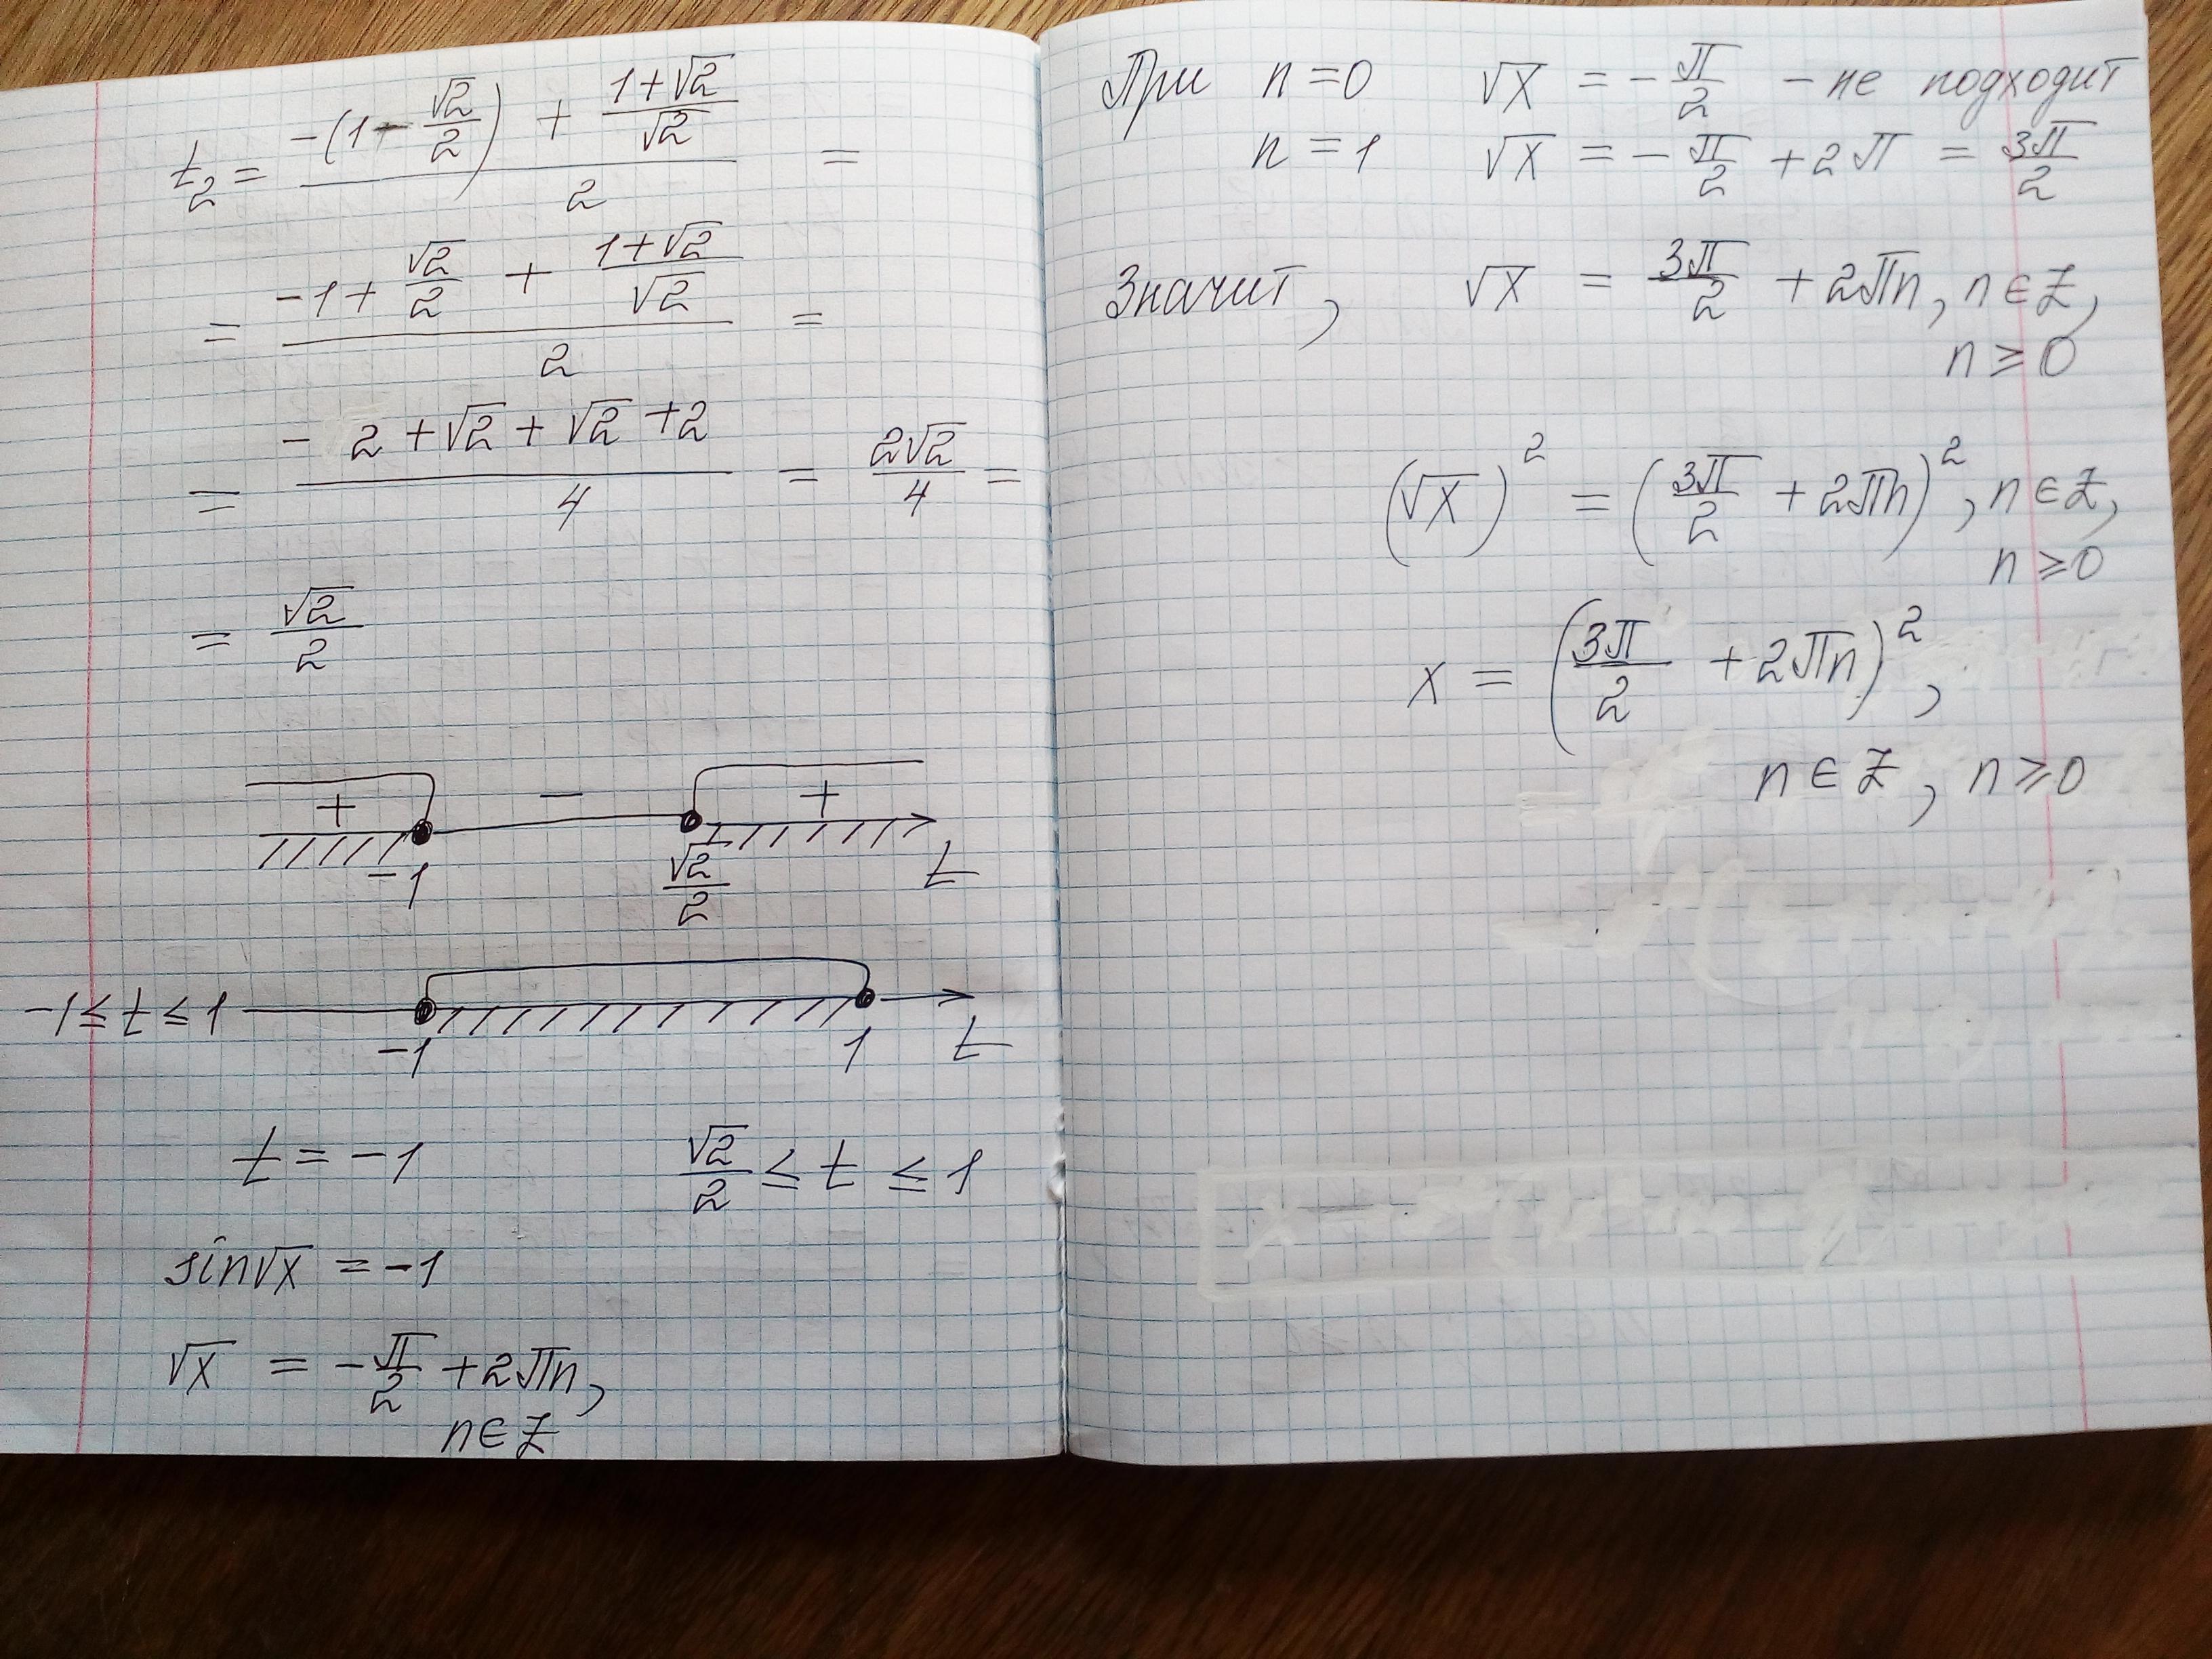 t₂ = (-(1 - √2/2) + (1+√2)/√2) / 2 =
= (-1 + √2/2 + (1+√2)/√2) / 2 =
= (-2 + √2 + √2 + 2) / 4 = 2√2/4 =
= √2/2
+ − +
-1 √2/2 t
-1 ≤ t ≤ 1
-1 1 t
t = -1 √2/2 ≤ t ≤ 1
sin√x = -1
√x = -π/2 + 2πn,
n ∈ Z
При n = 0 √x = -π/2 - не подходит
n = 1 √x = -π/2 + 2π = 3π/2
Значит, √x = 3π/2 + 2πn, n ∈ Z,
n ⩾ 0
(√x)² = (3π/2 + 2πn)², n ∈ Z,
n ⩾ 0
x = (3π/2 + 2πn)²,
n ∈ Z, n ⩾ 0